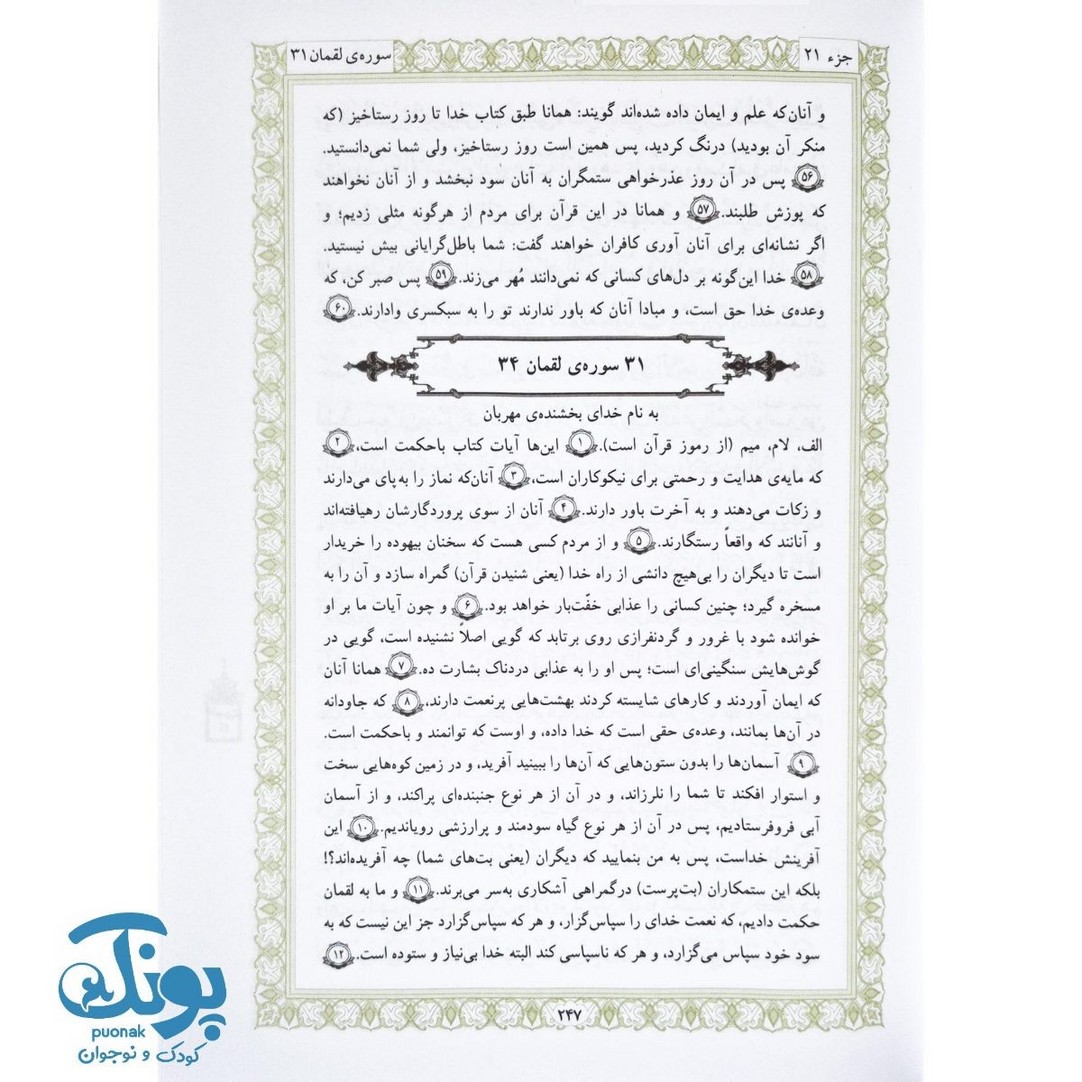 جزء ۲۱
سوره‌ی لقمان ۳۱
و آنان‌که علم و ایمان داده شده‌اند گویند: همانا طبق کتاب خدا تا روز رستاخیز (که
منکر آن بودید) درنگ کردید، پس همین است روز رستاخیز، ولی شما نمی‌دانستید.
۵۶ پس در آن روز عذرخواهی ستمگران به آنان سود نبخشد و از آنان نخواهند
که پوزش طلبند. ۵۷ و همانا در این قرآن برای مردم از هرگونه مثلی زدیم؛ و
اگر نشانه‌ای برای آنان آوری کافران خواهند گفت: شما باطل‌گرایانی بیش نیستید.
۵۸ خدا این‌گونه بر دل‌های کسانی که نمی‌دانند مُهر می‌زند. ۵۹ پس صبر کن، که
وعده‌ی خدا حق است، و مبادا آنان که باور ندارند تو را به سبکسری وادارند. ۶۰
۳۱ سوره‌ی لقمان ۳۴
به نام خدای بخشنده‌ی مهربان
الف، لام، میم (از رموز قرآن است). ۱ این‌ها آیات کتاب باحکمت است، ۲
که مایه‌ی هدایت و رحمتی برای نیکوکاران است، ۳ آنان‌که نماز را به‌پای می‌دارند
و زکات می‌دهند و به آخرت باور دارند. ۴ آنان از سوی پروردگارشان رهیافته‌اند
و آنانند که واقعاً رستگارند. ۵ و از مردم کسی هست که سخنان بیهوده را خریدار
است تا دیگران را بی‌هیچ دانشی از راه خدا (یعنی شنیدن قرآن) گمراه سازد و آن را به
مسخره گیرد؛ چنین کسانی را عذابی خفّت‌بار خواهد بود. ۶ و چون آیات ما بر او
خوانده شود با غرور و گردنفرازی روی برتابد که گویی اصلاً نشنیده است، گویی در
گوش‌هایش سنگینی‌ای است؛ پس او را به عذابی دردناک بشارت ده. ۷ همانا آنان
که ایمان آوردند و کارهای شایسته کردند بهشت‌هایی پرنعمت دارند، ۸ که جاودانه
در آن‌ها بمانند، وعده‌ی حقی است که خدا داده، و اوست که توانمند و باحکمت است.
۹ آسمان‌ها را بدون ستون‌هایی که آن‌ها را ببینید آفرید، و در زمین کوه‌هایی سخت
و استوار افکند تا شما را نلرزاند، و در آن از هر نوع جنبنده‌ای پراکند، و از آسمان
آبی فروفرستادیم، پس در آن از هر نوع گیاه سودمند و پرارزشی رویاندیم. ۱۰ این
آفرینش خداست، پس به من بنمایید که دیگران (یعنی بت‌های شما) چه آفریده‌اند؟!
بلکه این ستمکاران (بت‌پرست) درگمراهی آشکاری به‌سر می‌برند. ۱۱ و ما به لقمان
حکمت دادیم، که نعمت خدای را سپاس‌گزار، و هر که سپاس‌گزارد جز این نیست که به
سود خود سپاس می‌گزارد، و هر که ناسپاسی کند البته خدا بی‌نیاز و ستوده است. ۱۲
۲۴۷
پونک
puonak
کودک و نوجوان